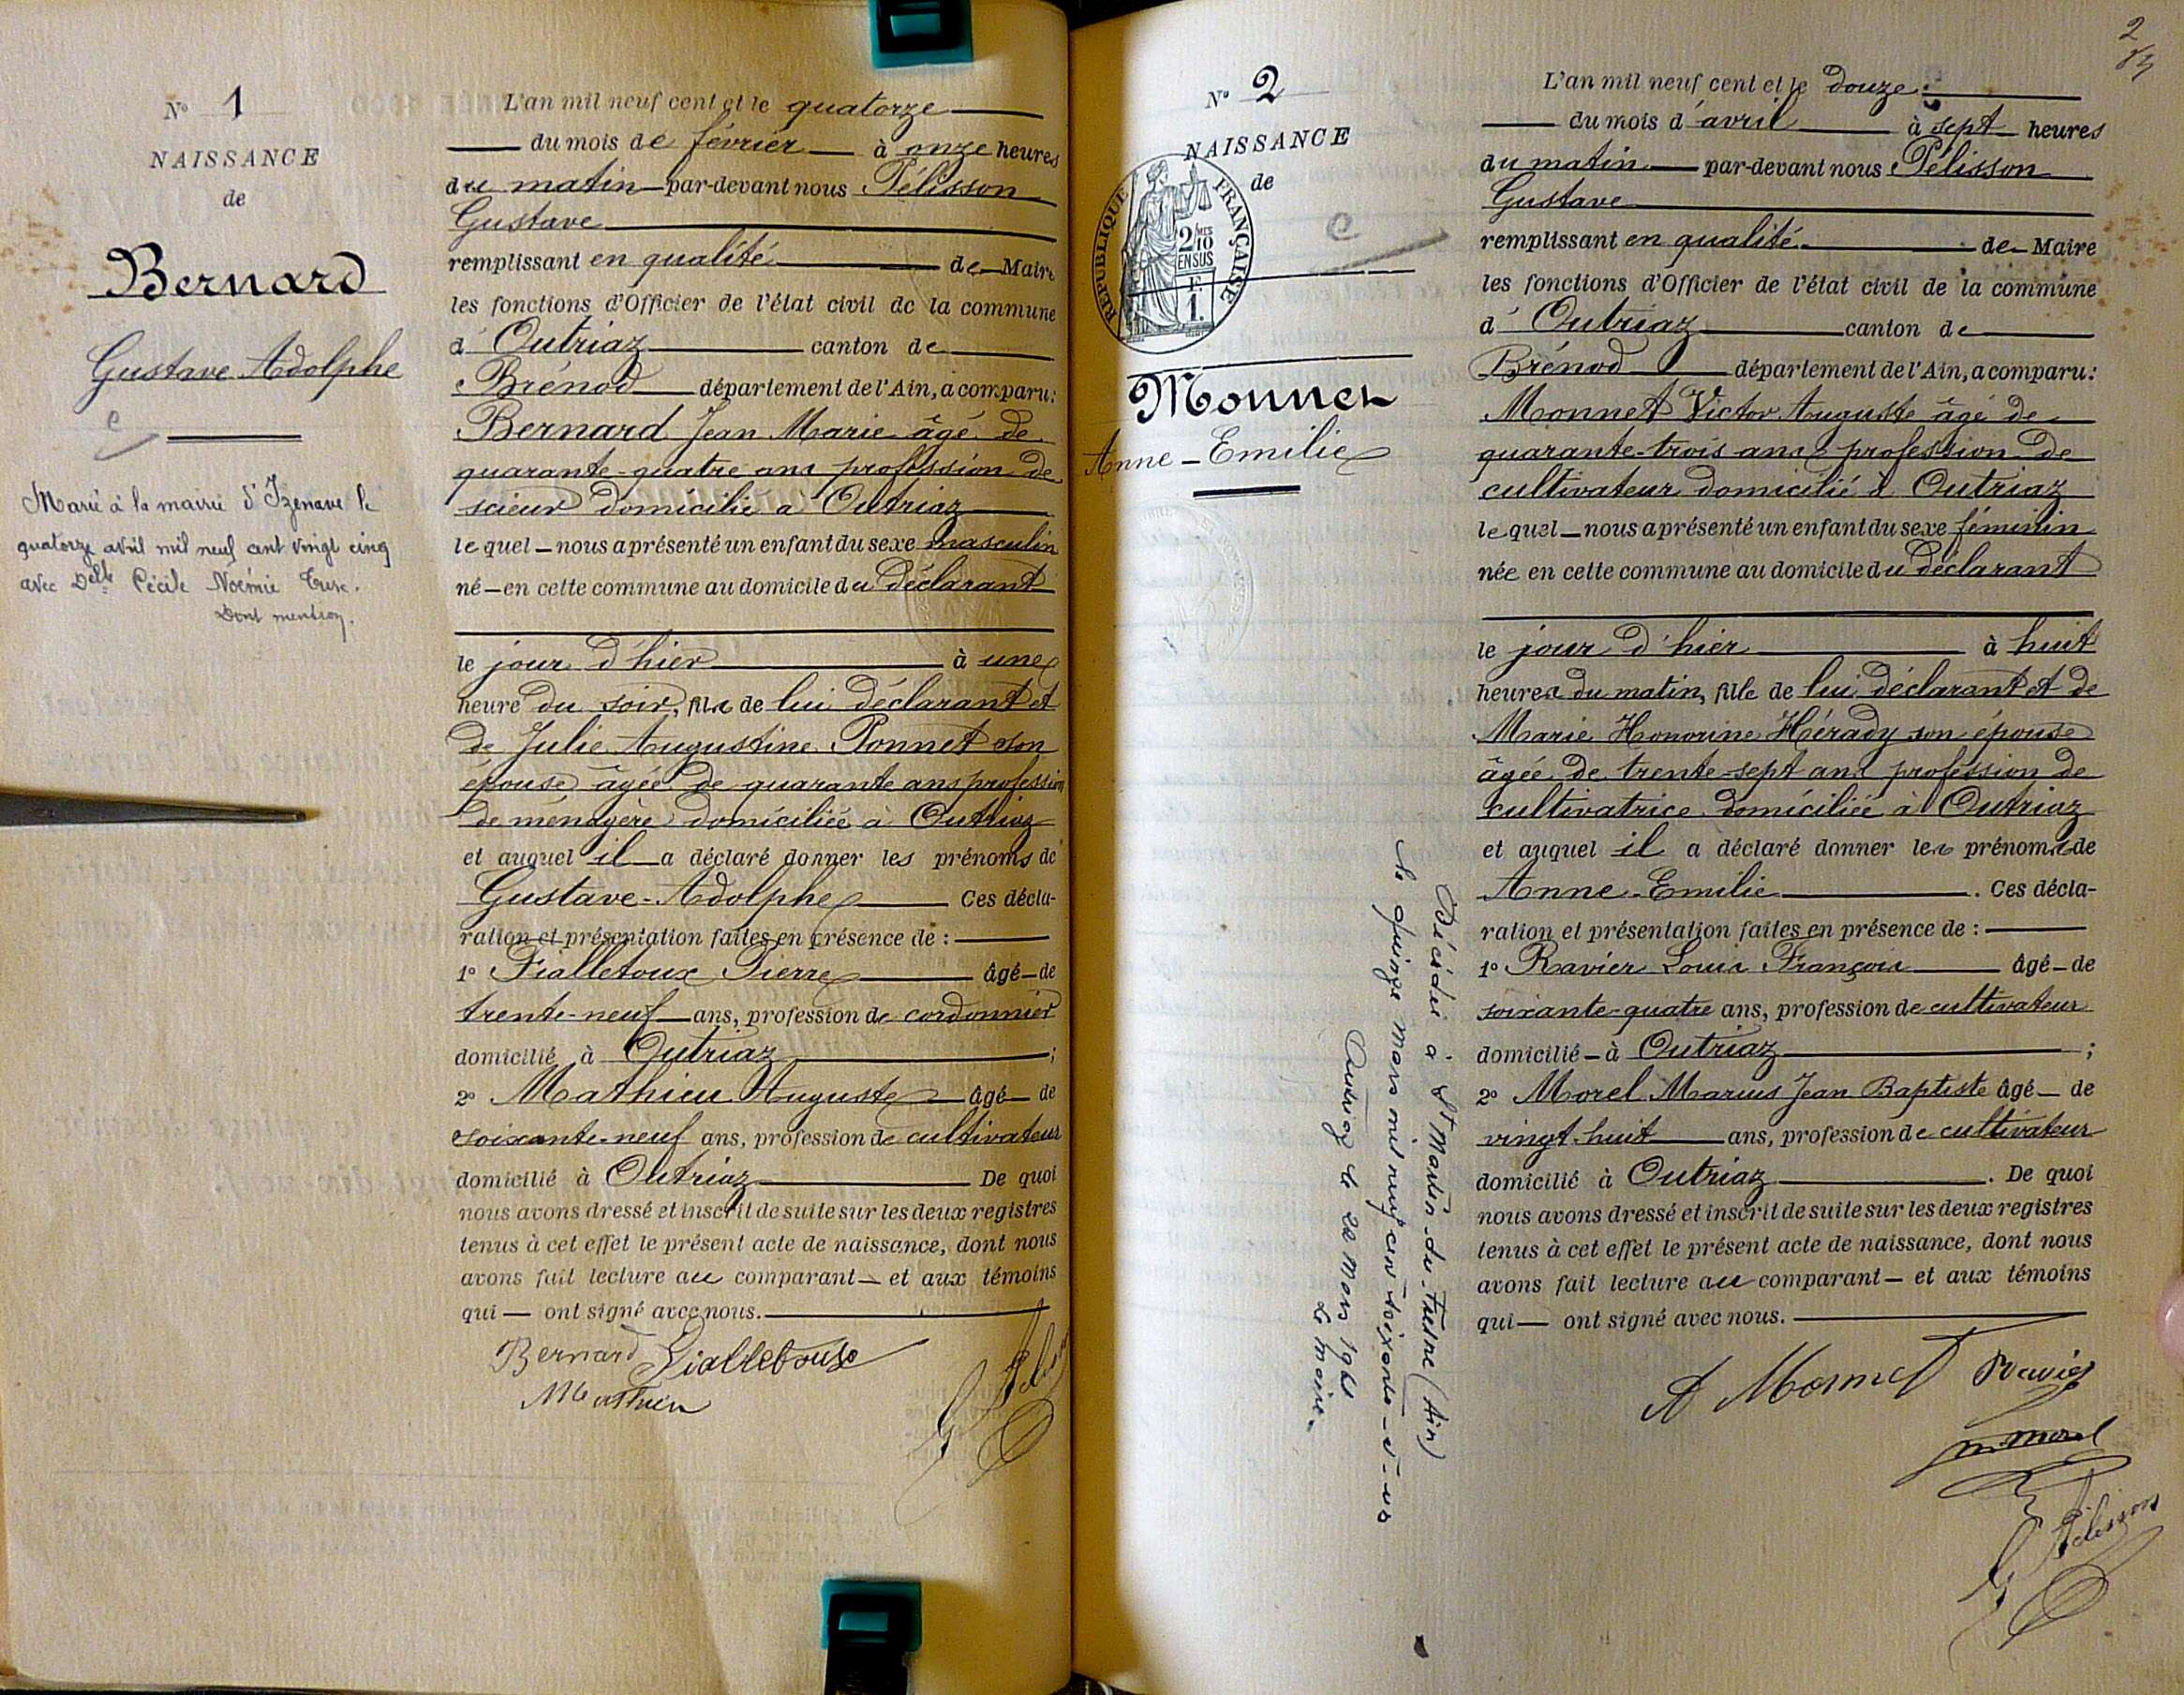 N° 1
NAISSANCE
de
Bernard
Gustave Adolphe
Marié à la mairie d'Izenave le
quatorze avril mil neuf cent vingt cinq
avec Delle Cécile Noémie
Dont mention.
L'an mil neuf cent et le quatorze
du mois de février à onze heures
du matin par-devant nous Pélisson
Gustave
remplissant en qualité de Maire
les fonctions d'Officier de l'état civil de la commune
d'Outriaz canton de
Brénod département de l'Ain, a comparu:
Bernard Jean Marie âgé de
quarante-quatre ans profession de
scieur domicilié à Outriaz
lequel nous a présenté un enfant du sexe masculin
né en cette commune au domicile du déclarant
le jour d'hier à une
heure du soir, fils de lui déclarant et
de Julie Augustine Ponnet son
épouse âgée de quarante ans profession
de ménagère domiciliée à Outriaz
et auquel il a déclaré donner les prénoms de
Gustave-Adolphe Ces décla-
ration et présentation faites en présence de :
1° Fialletoux Pierre âgé de
trente-neuf ans, profession de cordonnier
domicilié à Outriaz ;
2° Mathieu Auguste âgé de
soixante-neuf ans, profession de cultivateur
domicilié à Outriaz De quoi
nous avons dressé et inscrit de suite sur les deux registres
tenus à cet effet le présent acte de naissance, dont nous
avons fait lecture au comparant et aux témoins
qui ont signé avec nous.
Bernard Fialletoux
Mathieu
2
N° 2
NAISSANCE
de
REPUBLIQUE FRANÇAISE
2/10
EN SUS
F.
1.
Monnet
Anne-Emilie
Décédée à St Martin-du-Fresne (Ain)
le quinze mars mil neuf cent soixante-et-un
Outriaz le 20 mars 1961
Le maire.
L'an mil neuf cent et le douze
du mois d'avril à sept heures
du matin par-devant nous Pélisson
Gustave
remplissant en qualité de Maire
les fonctions d'Officier de l'état civil de la commune
d'Outriaz canton de
Brénod département de l'Ain, a comparu:
Monnet Victor Auguste âgé de
quarante-trois ans profession de
cultivateur domicilié à Outriaz
lequel nous a présenté un enfant du sexe féminin
née en cette commune au domicile du déclarant
le jour d'hier à huit
heures du matin, fille de lui déclarant et de
Marie Honorine Hérady son épouse
âgée de trente-sept ans profession de
cultivatrice domiciliée à Outriaz
et auquel il a déclaré donner les prénoms de
Anne-Emilie . Ces décla-
ration et présentation faites en présence de :
1° Ravier Louis François âgé de
soixante-quatre ans, profession de cultivateur
domicilié à Outriaz ;
2° Morel Marius Jean Baptiste âgé de
vingt-huit ans, profession de cultivateur
domicilié à Outriaz . De quoi
nous avons dressé et inscrit de suite sur les deux registres
tenus à cet effet le présent acte de naissance, dont nous
avons fait lecture au comparant et aux témoins
qui ont signé avec nous.
A Monnet Ravier
m morel
G Pélisson